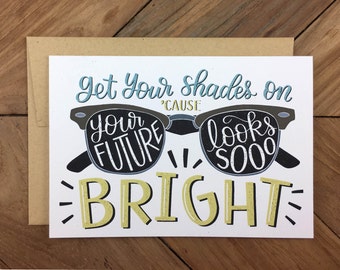 get your shades on
'CAUSE
your FUTURE
looks SOOO
BRIGHT